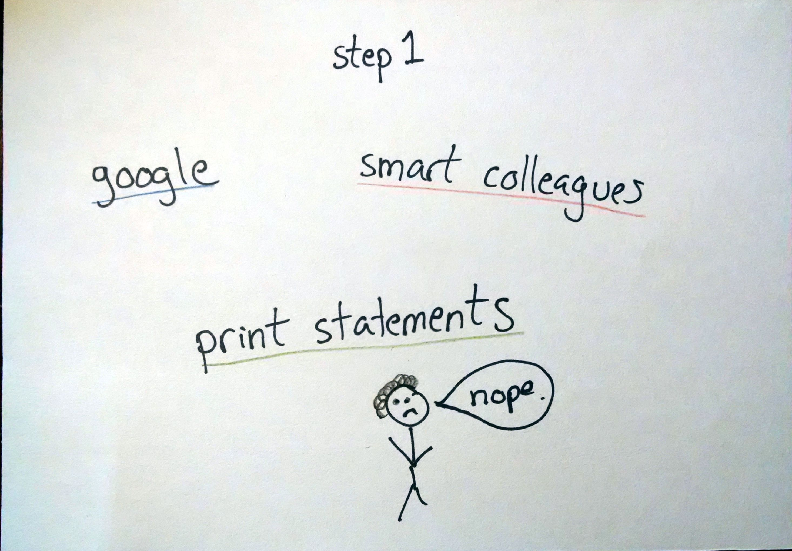 step 1
google
smart colleagues
print statements
nope.